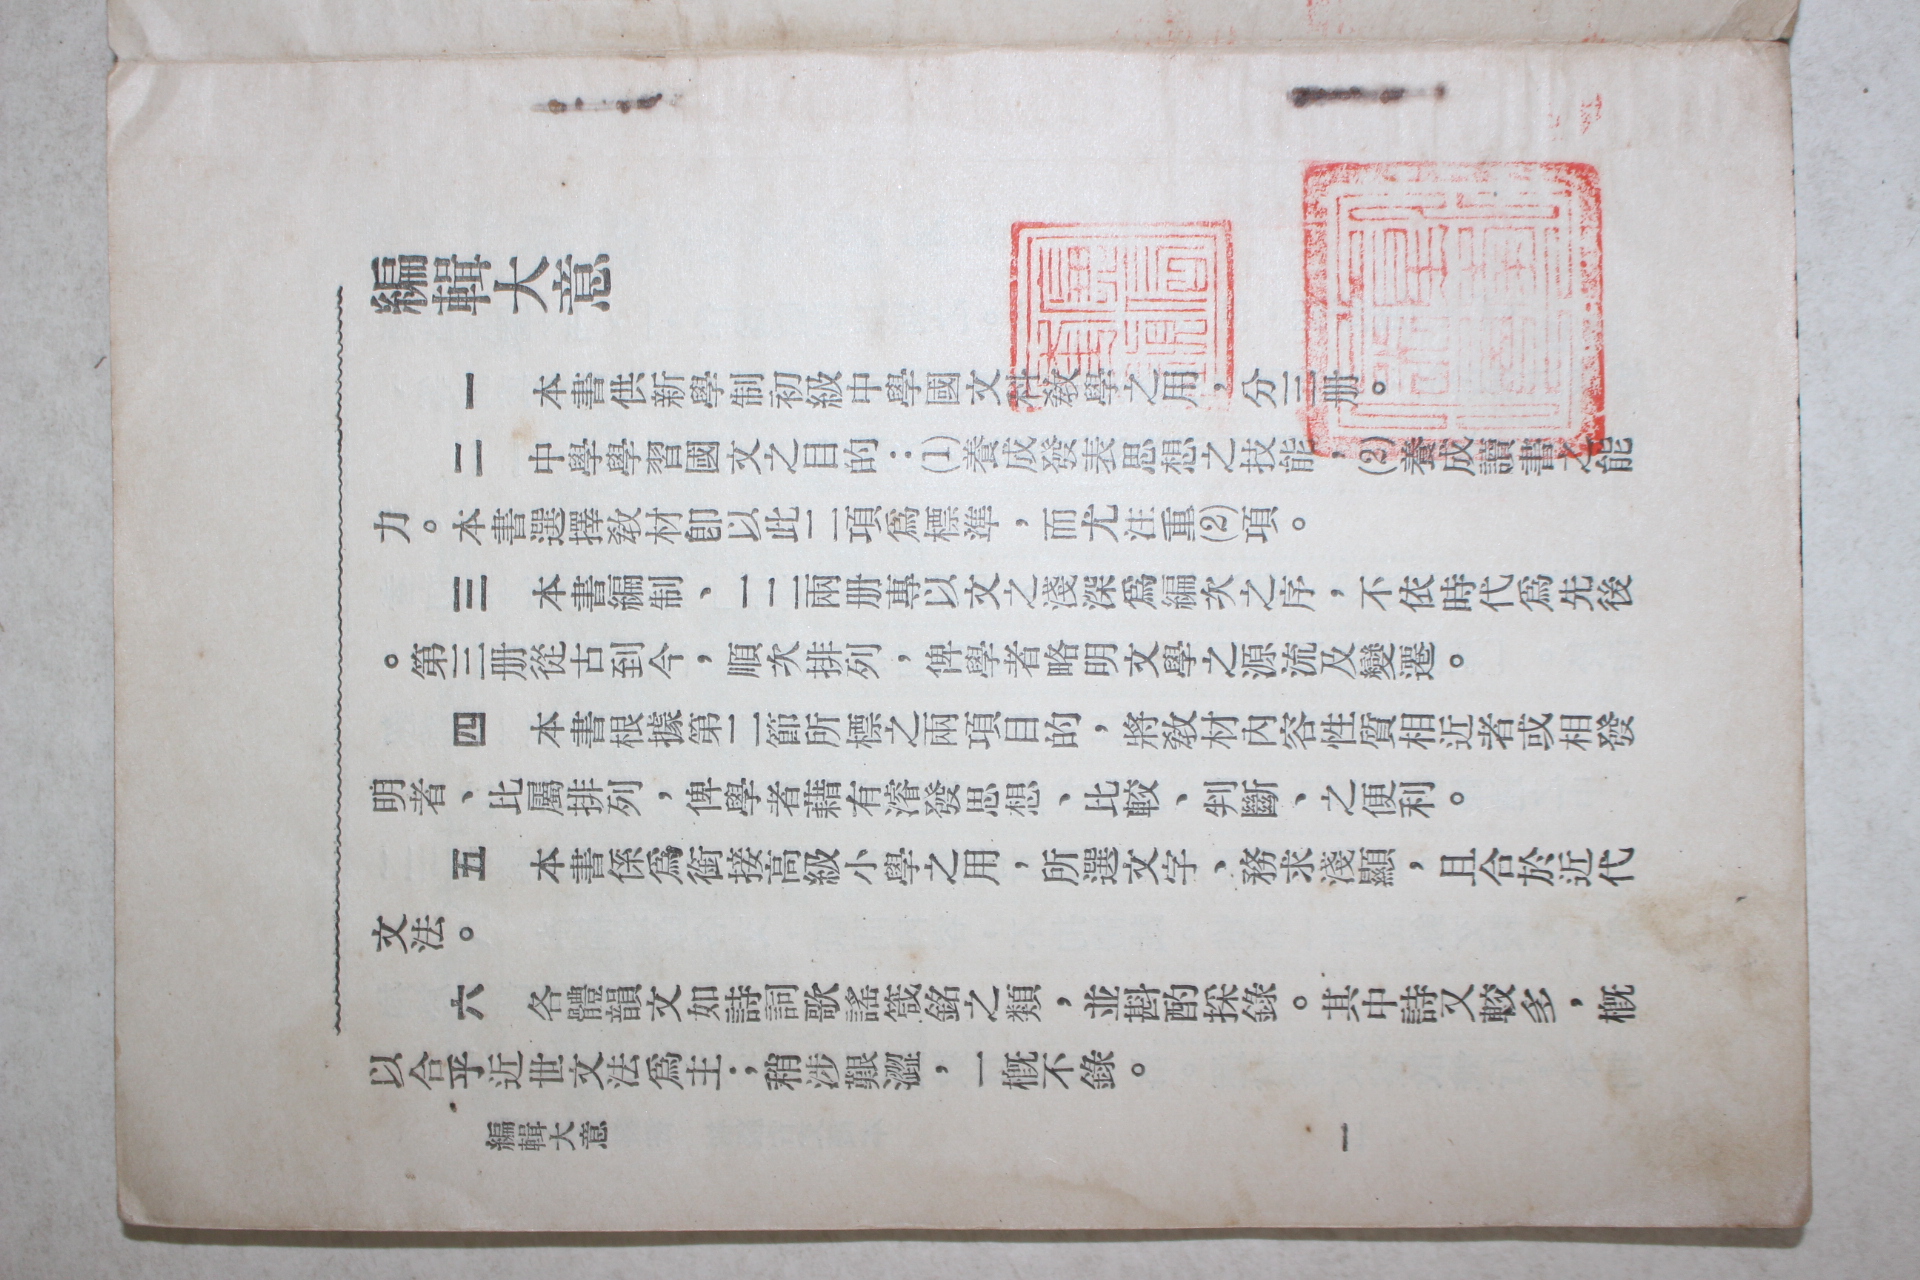 編輯大意
一　本書供新學制初級中學國文科敎學之用，分三册。
二　中學學習國文之目的：(1)養成發表思想之技能，(2)養成讀書之能
力。本書選擇敎材卽以此二項爲標準，而尤注重(2)項。
三　本書編制、一二兩册專以文之淺深爲編次之序，不依時代爲先後
。第三册從古到今，順次排列，俾學者略明文學之源流及變遷。
四　本書根據第二節所標之兩項目的，將敎材內容性質相近者或相發
明者、比屬排列，俾學者藉有濬發思想、比較、判斷、之便利。
五　本書係爲銜接高級小學之用，所選文字、務求淺顯，且合於近代
文法。
六　各體韻文如詩詞歌謠箴銘之類，並斟酌採錄。其中詩又較多，槪
以合乎近世文法爲主；稍涉艱澀，一槪不錄。
編輯大意
一